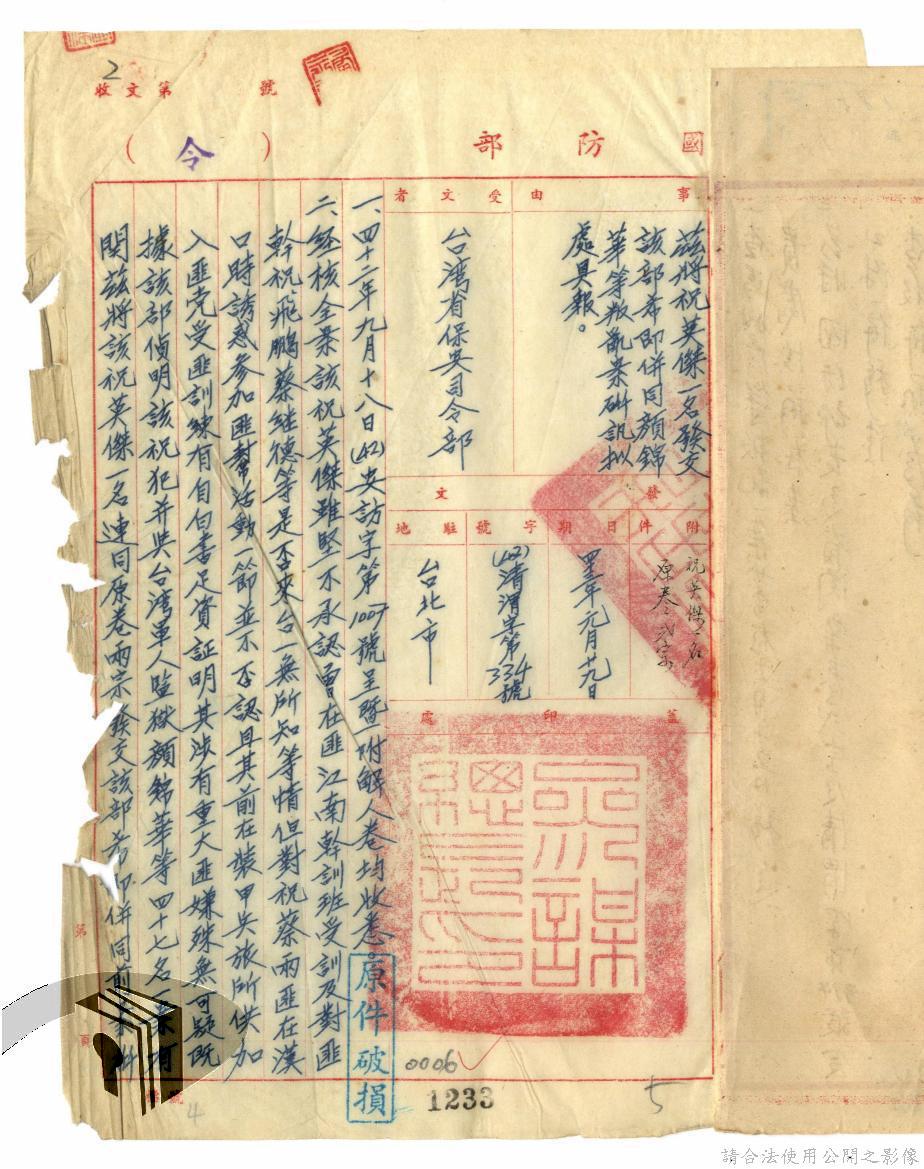 2
收文第 號
國防部
(令)
事由
茲將祝英傑一名發交
該部希即併同顏錦
華等叛亂案研訊拟
處具報。
受文者
台灣省保安司令部
發文
附件
祝英傑一名
原卷弍宗
日期
四三年元月廿九日
字號
(42)清渭字第334號
駐地
台北市
蓋印處
參謀總長印
一、四十二年九月十八日(42)安訪字第1007號呈暨附解人卷均收悉。
二、經核全案該祝英傑雖堅不承認曾在匪江南幹訓班受訓及對匪
幹祝飛鵬蔡继德等是否來台一無所知等情但對祝蔡兩匪在漢
口時誘惑參加匪幫活動一節並不否認且其前在裝甲兵旅所供加
入匪党受匪訓練有自白書足資証明其涉有重大匪嫌殊無可疑既
據該部偵明該祝犯并與台湾軍人監獄顏錦華等四十七名一案有
関茲將該祝英傑一名連同原卷兩宗發交該部希即併同前案研
原件破損
0006
1233
5
第
頁
4
號
請合法使用公開之影像